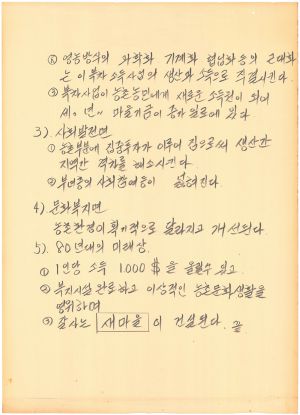 ⑥ 영농방식의 과학화 기계화 협업화 등의 근대화
는 이 복차 소득사업의 생산과 소득으로 직결시킨다.
⑦ 복차사업이 농촌농민에게 새로운 소득원이 되어
마을기금이 증가 일로에 있다
3). 사회발전면
① 농촌부문에 집중투자가 이루어 짐으로써 생산간
지역간 격차를 해소시킨다.
② 부녀층의 사회참여등이 넓혀진다.
4). 문화복지면
농촌환경이 획기적으로 달라지고 개선된다.
5). 80년대의 미래상.
① 1인당 소득 1.000 $을 올릴수 있고
② 복지시설 완료하고 이상적인 농촌문화생활을
영위하며
③ 잘사는 새마을이 건설된다. 끝